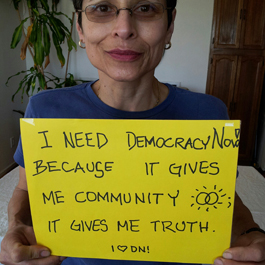 I NEED DEMOCRACY NOW!
BECAUSE IT GIVES
ME COMMUNITY
IT GIVES ME TRUTH.
I ♡ DN!